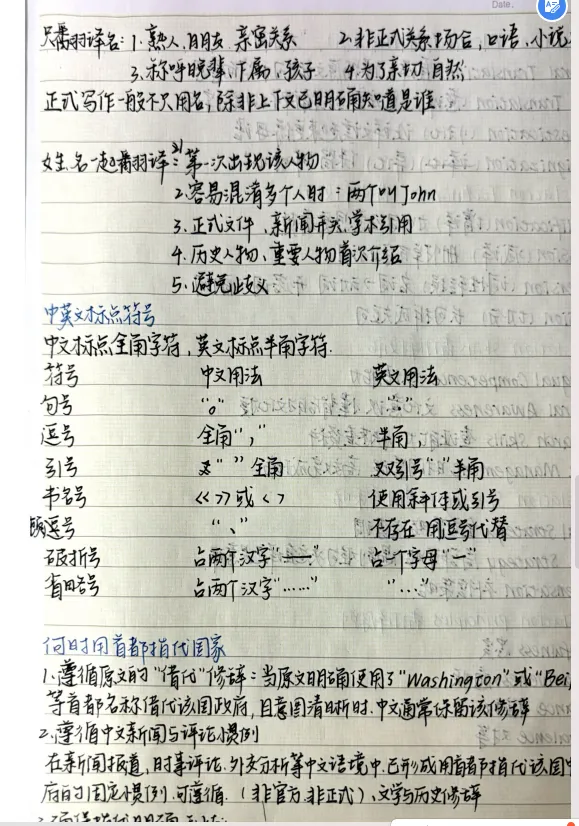 Date.
只翻译名:1.熟人、朋友、亲密关系 2.非正式关系场合,口语,小说
3.称呼晚辈,下属,孩子 4.为了亲切、自然
正式写作一般不只用名,除非上下文已明确知道是谁
姓名一起翻译:1.第一次出现该人物
2.容易混淆多个人时:两个叫John
3.正式文件、新闻开头、学术引用
4.历史人物、重要人物首次介绍
5.避免歧义
中英文标点符号
中文标点全角字符,英文标点半角字符.
符号 中文用法 英文用法
句号 “。” “.”
逗号 全角“,” 半角,
引号 双“ ”全角 双引号“ ”半角
书名号 《》或〈〉 使用斜体或引号
顿号 “、” 不存在 用逗号代替
破折号 占两个汉字“——” 占一个字母“—”
省略号 占两个汉字“……” “...”
何时用首都指代国家
1.遵循原文的“借代”修辞:当原文明确使用了“Washington”或“Bei
等首都名称借代该国政府,且意图清晰时.中文通常保留该修辞
2.遵循中文新闻与评论惯例
在新闻报道,时事评论.外交分析等中文语境中.已形成用首都指代该国
府的固定惯例.可遵循.(非官方.非正式)、文学与历史修辞